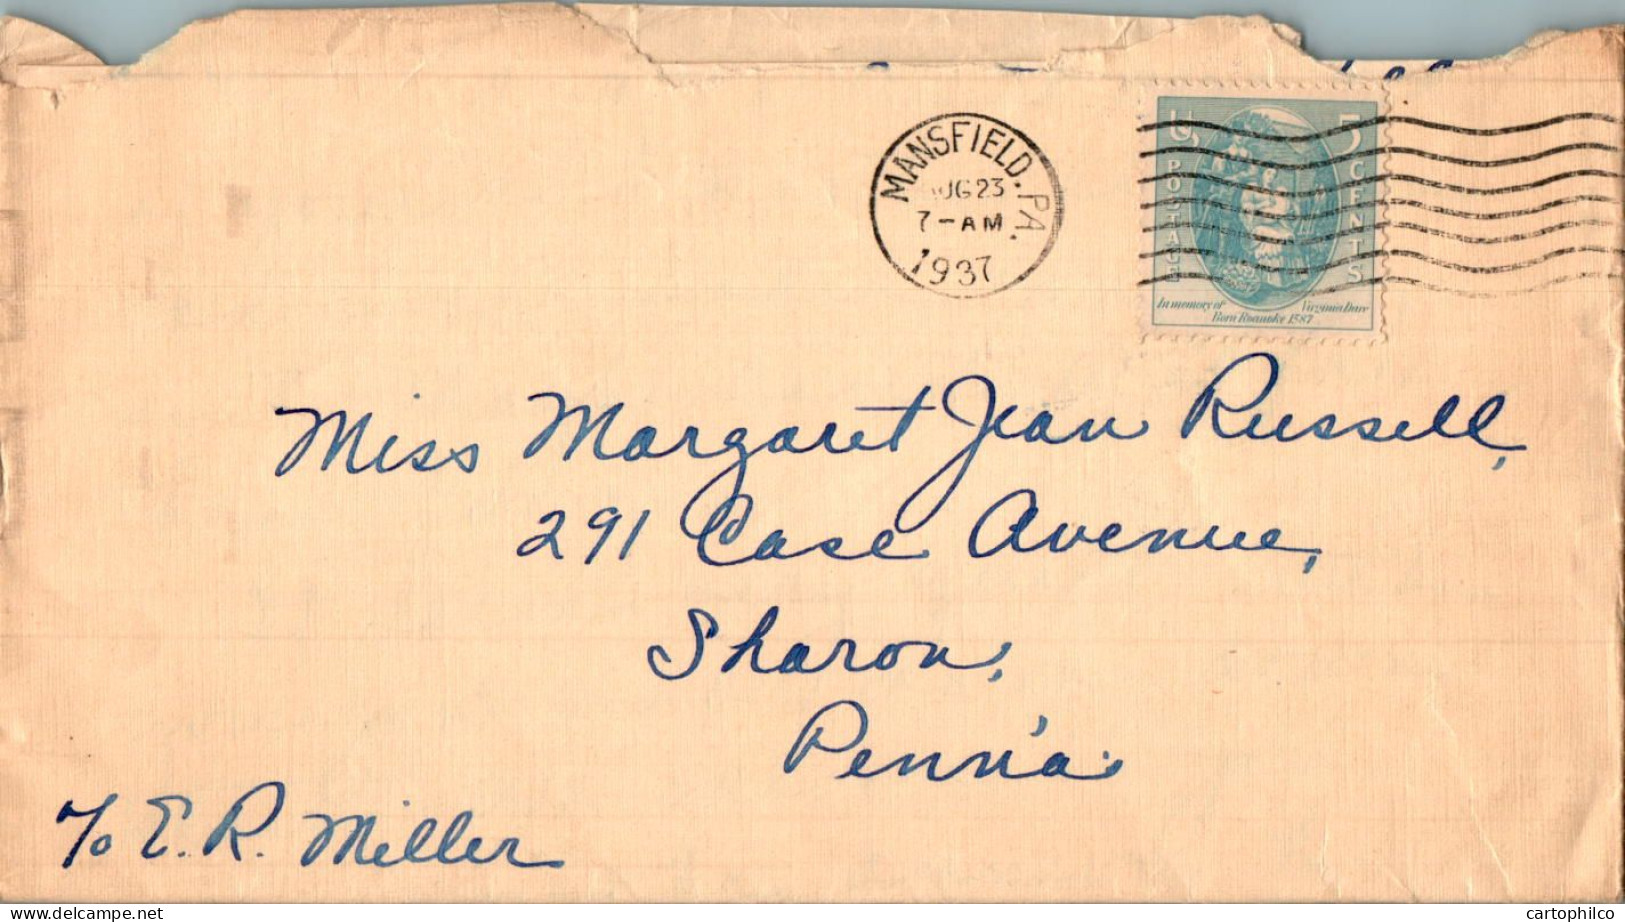 MANSFIELD. PA.
AUG 23
7-AM
1937
U S POSTAGE
5 CENTS
In memory of Virginia Dare
Born Roanoke 1587
Miss Margaret Jean Russell,
291 Case Avenue,
Sharon,
Penn'a.
c/o E. R. Miller
delcampe.net
cartophilco